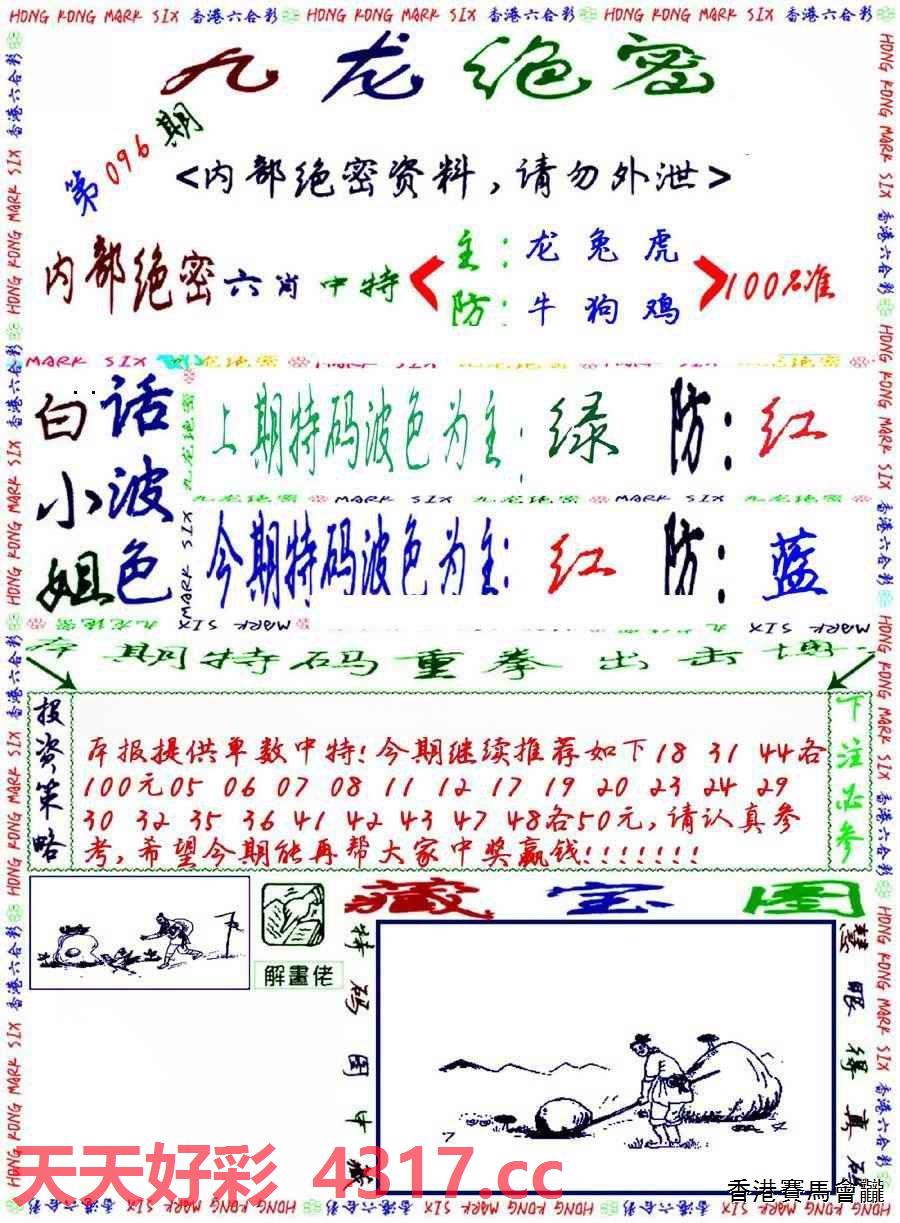 HONG KONG MARK SIX 香港六合彩 HONG KONG MARK SIX 香港六合彩 HONG KONG MARK SIX 香港六合彩
九龙绝密
第096期
<内部绝密资料,请勿外泄>
内部绝密六肖中特
主:龙兔虎
防:牛狗鸡
100%准
白小姐
话波色
上期特码波色为主:绿 防:红
今期特码波色为主:红 防:蓝
期特码重拳出击
投资策略
本报提供单数中特!今期继续推荐如下18 31 44各
100元05 06 07 08 11 12 17 19 20 23 24 29
30 32 35 36 41 42 43 47 48各50元,请认真参
考,希望今期能再帮大家中奖赢钱!!!!!!!
下注必参
解畫佬
藏宝图
特码图中
慧眼得真
天天好彩 4317.cc
香港賽馬會